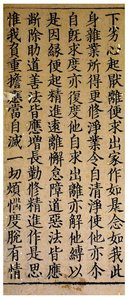 下劣心起厭離便求出家作如是念如我此
身雜業所得更修淨業令自清淨使他亦尒
自既求度亦復度他自求出離亦解他縛以
是因緣便起精進遠離懈怠障道惡法皆應
斷除助道善法皆應增長勤修精進作是思
惟我負重擔應當自滅一切煩惱度脫有情